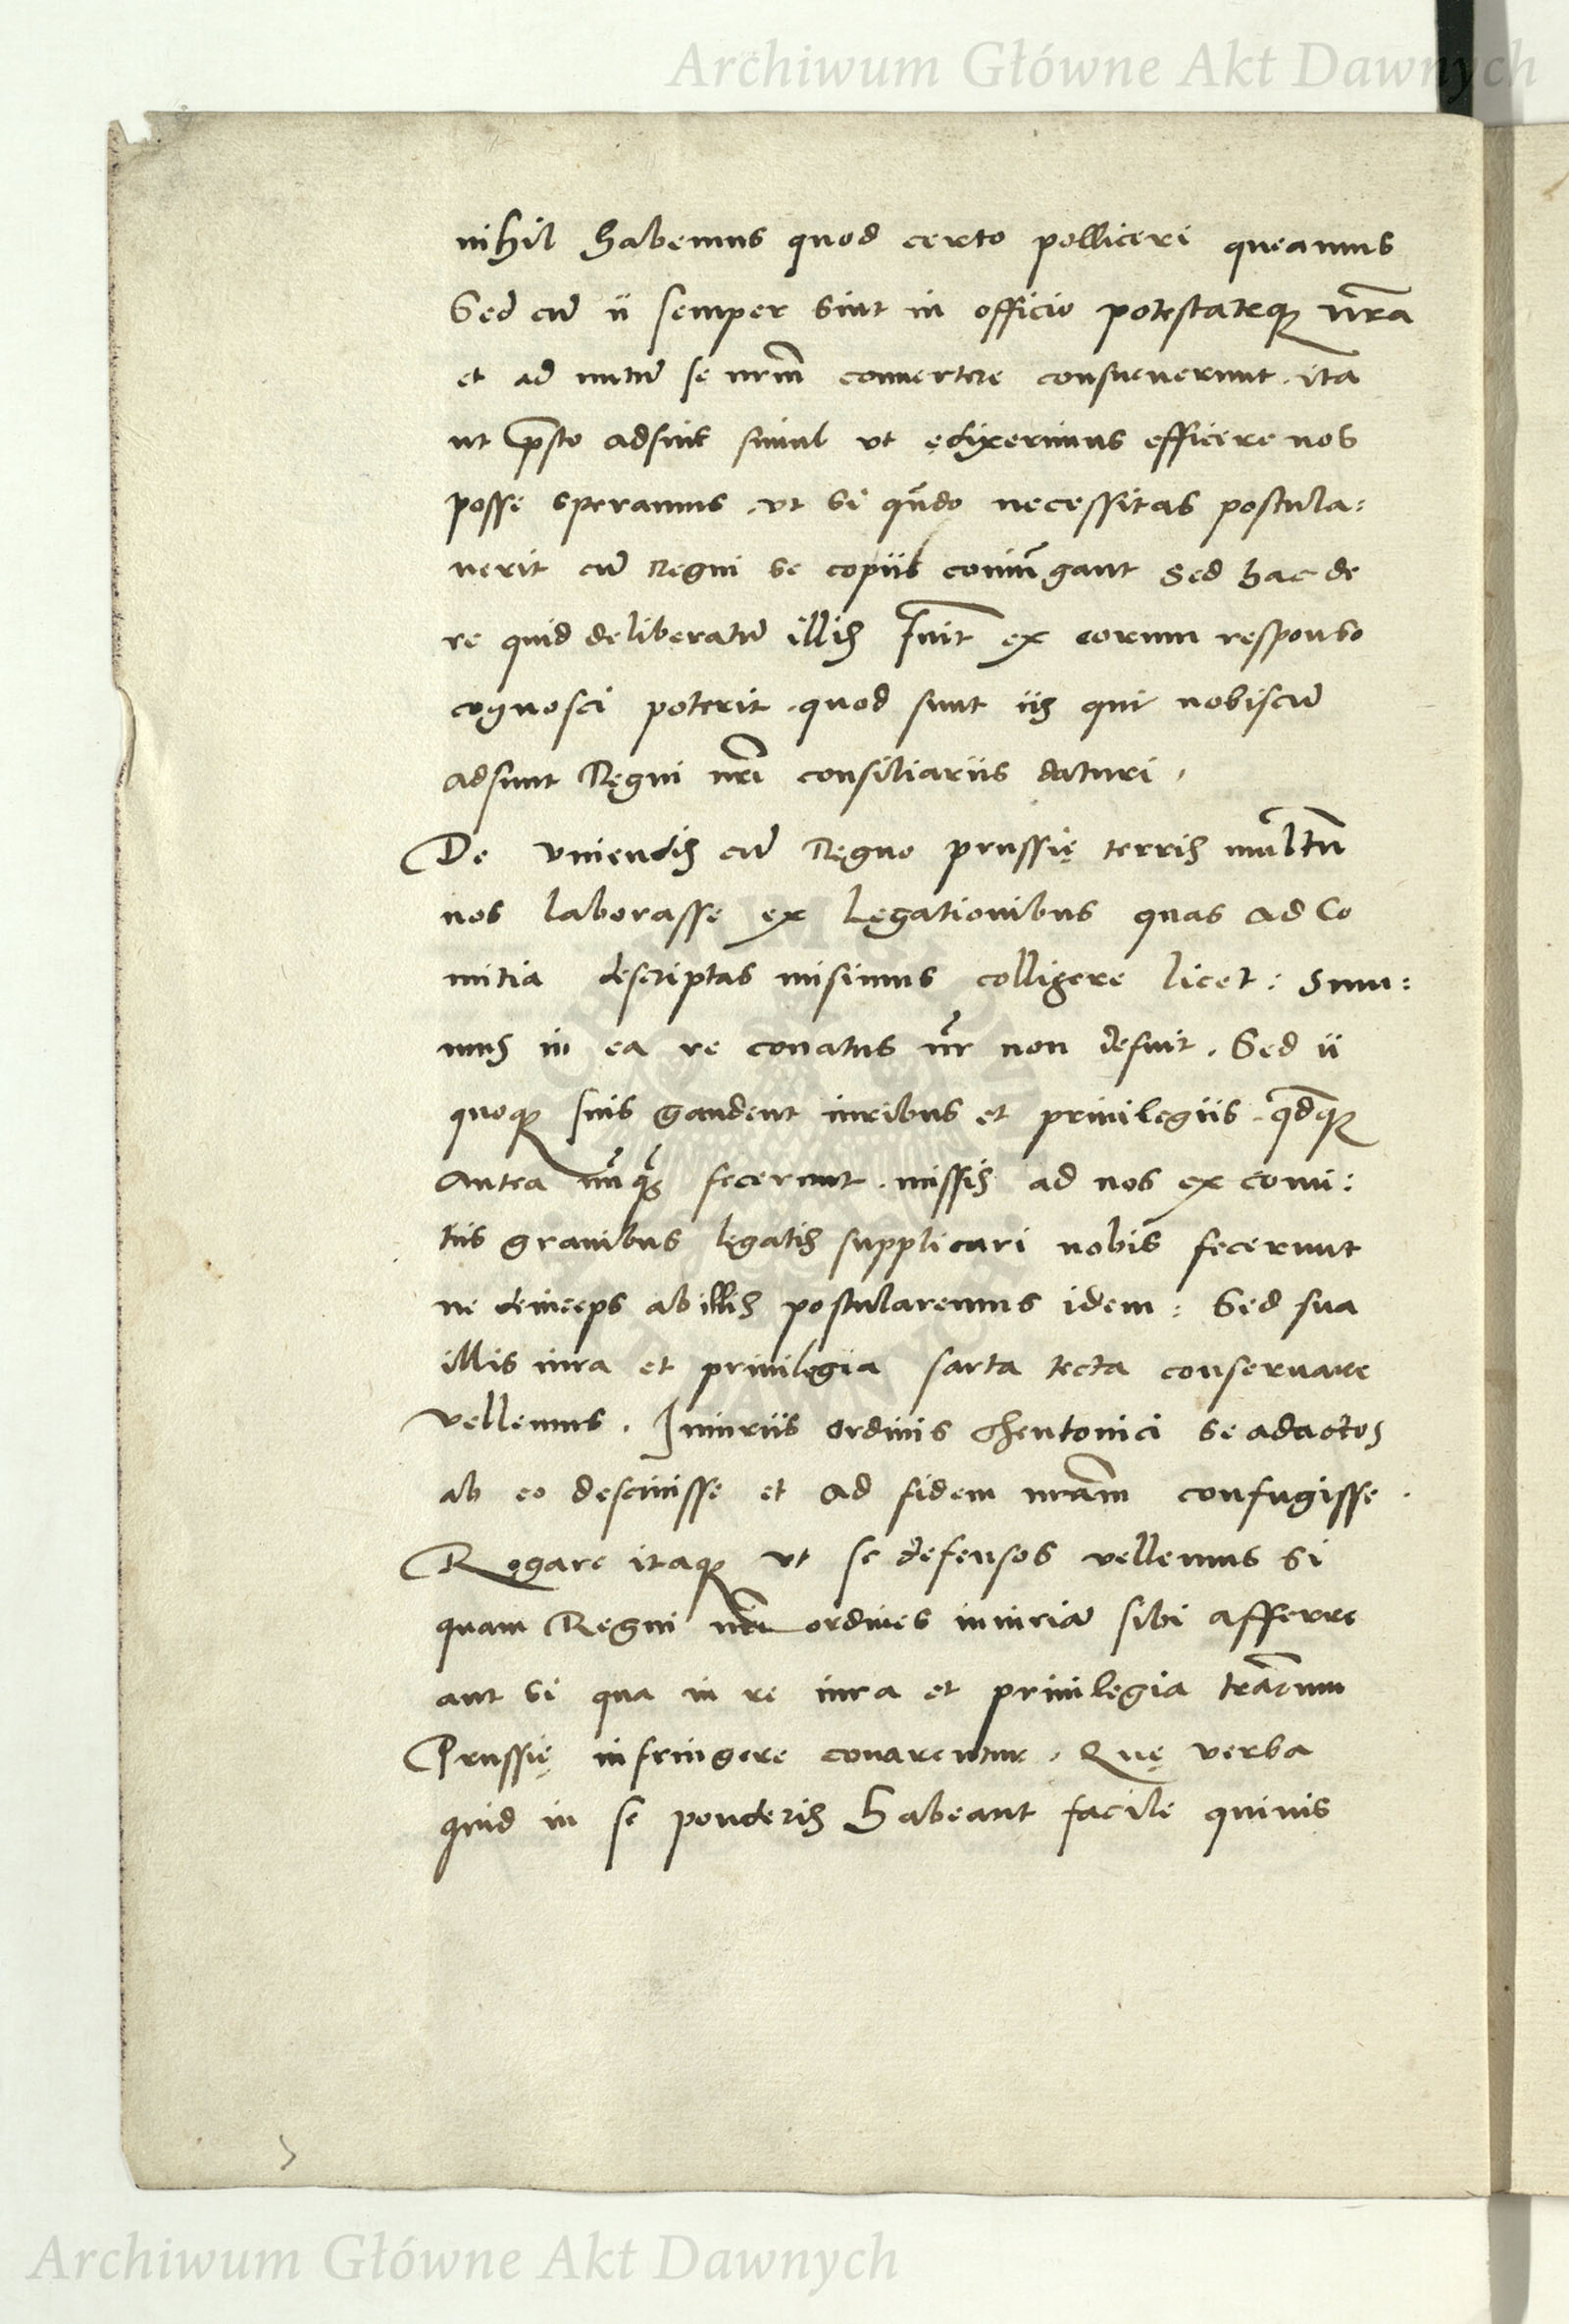 Archiwum Główne Akt Dawnych
nihil habemus quod certo polliceri queamus
Sed cū ii semper sint in officio potestateq₃ nr̄a
et ad nutū se nrm̄ conuertere consueuerunt . ita
ut p̄sto adsint simul vt ędixerimus efficere nos
posse speramus . vt si qn̄do necessitas postula:
uerit cū Regni se copiis coniūgant Sed hac de
re quid deliberatū illis fuit ex eorum responso
cognosci poterit . quod sunt iis qui nobiscū
adsunt Ręgni nr̄i consiliariis daturi .
De vniendis cū Ręgno prussię terris multū
nos laborasse ex Lęgationibus quas ad Co
mitia descriptas misimus colligere licet : Sum:
mus in ea re conatus nr̄ non defuit . Sed ii
quoq₃ suis gaudent iuribus et priuilegiis . qd̄q₃
antea nūq̄ fecerunt . missis ad nos ex comi:
tiis grauibus lęgatis supplicari nobis fecerunt
ne deinceps ab illis postularemus idem : Sed sua
illis iura et priuilęgia sarta tecta conseruare
vellemus . Iniuriis ordinis Theutonici se adactos
ab eo desciuisse et ad fidem nrām confugisse .
Rogare itaq₃ vt se defensos vellemus si
quam Regni nr̄i ordines iniuriā sibi afferre
aut si qua in re iura et priuilegia trārum
Prussię infringere conarentur . Quę verba
quid in se ponderis habeant facile quiuis
Archiwum Główne Akt Dawnych